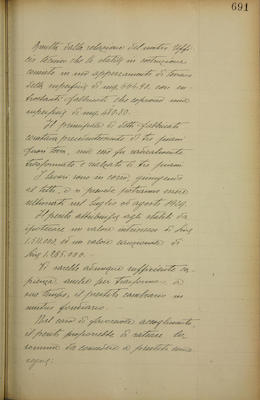 691
Risulta dalla relazione del nostro Uffi-
cio tecnico che lo stabile in costruzione
consiste in un appezzamento di terreno
della superficie di mq. 666.90. con en-
trostanti fabbricati che coprono una
superficie di mq. 480.80.
Il principale di detti fabbricati
constava precedentemente di tre piani
fuori terra, ma ora fu radicalmente
trasformato e rialzato di tre piani
I lavori sono in corso, giungendo
al tetto, e si prevede potranno essere
ultimati nel luglio od agosto 1929.
Il perito attribuisce agli stabili da
ipotecare un valore intrinseco di Lire
di
Lire 1.285.000. -
Vi sarebbe adunque sufficiente ca-
pienza anche per trasformare, a
suo tempo, il prestito cambiario in
mutuo fondiario. -
Nel caso di favorevole accoglimento,
il perito proporrebbe di ratizzare la
somma da concedersi a prestito come
segue: